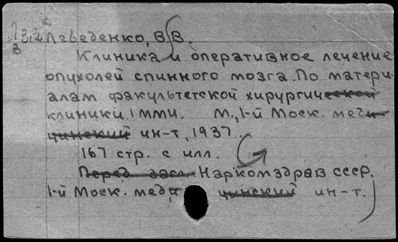 Лебеденко, В.В.
Клиника и оперативное лечение
опухолей спинного мозга. По матери-
алам факультетской хирургической
клиники 1 ММИ. М., 1-й Моск. меди-
цинский ин-т, 1937.
167 стр. с илл.
Перед загл. Наркомздрав СССР.
1-й Моск. меди цинский ин-т.